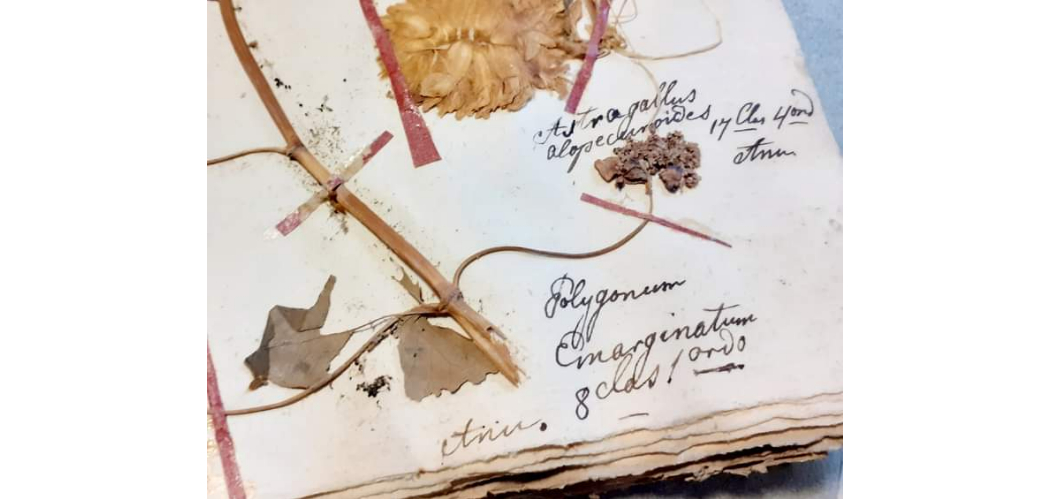 Astragallus
alopecuroides 17 Clas 4 ord
Ann
Polygonum
Emarginatum
8 clas 1 ordo
Ann.